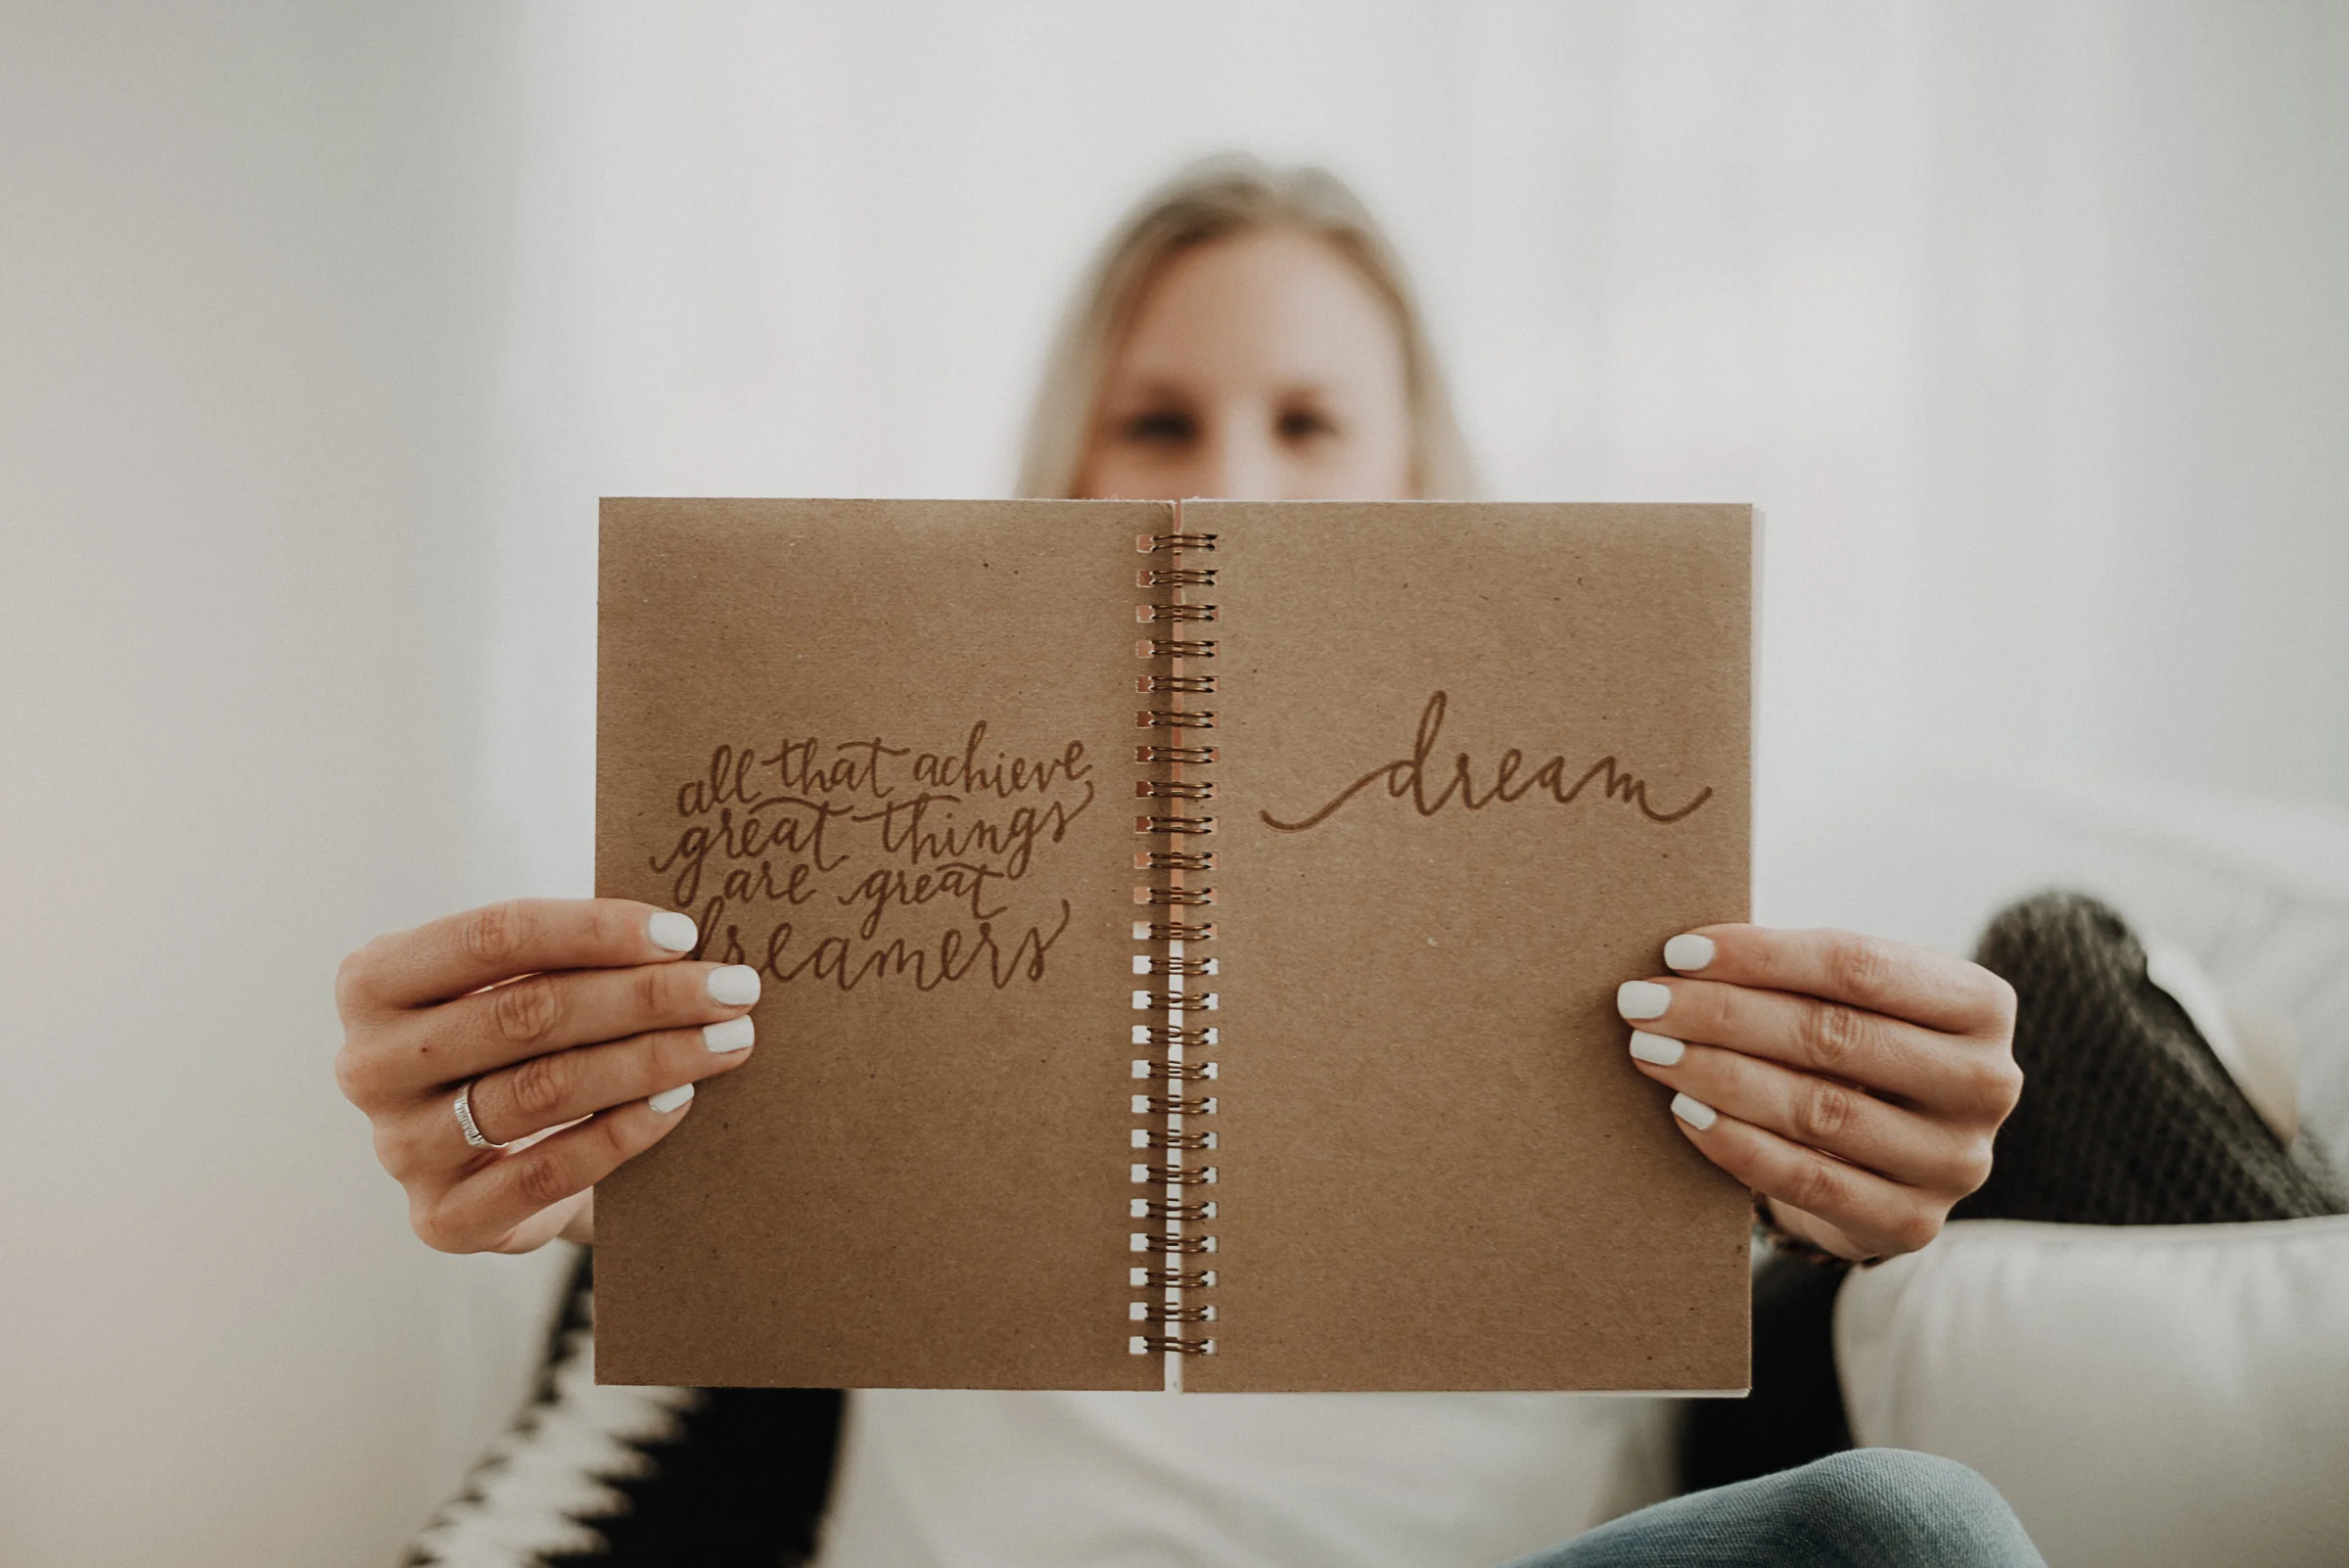 all that achieve
great things
are great
dreamers
dream